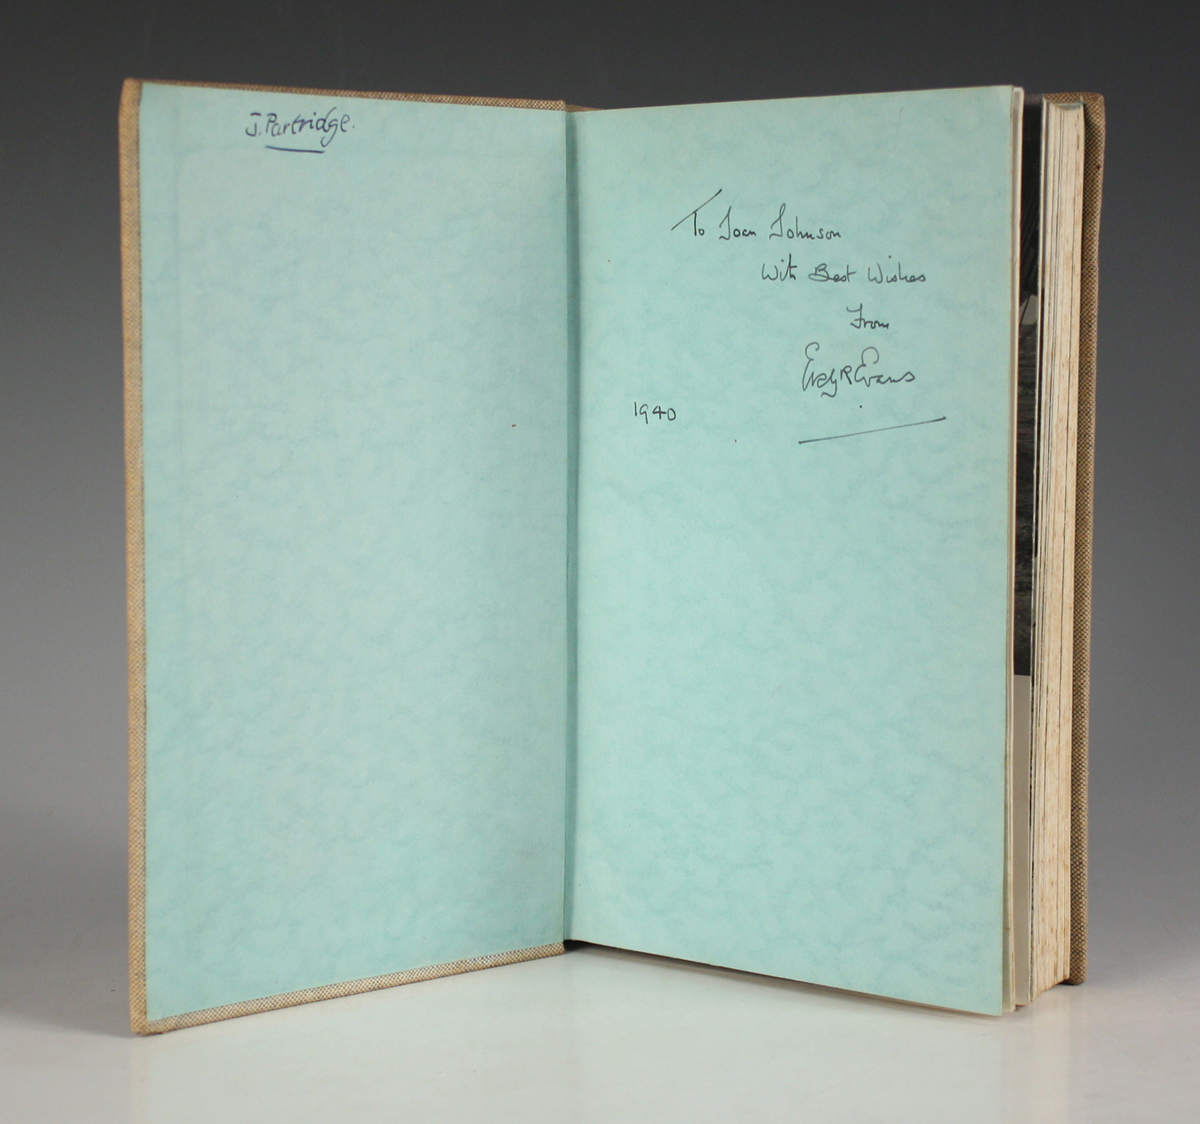 J. Partridge.
To Joan Johnson
With Best Wishes
From
R Evans
1940